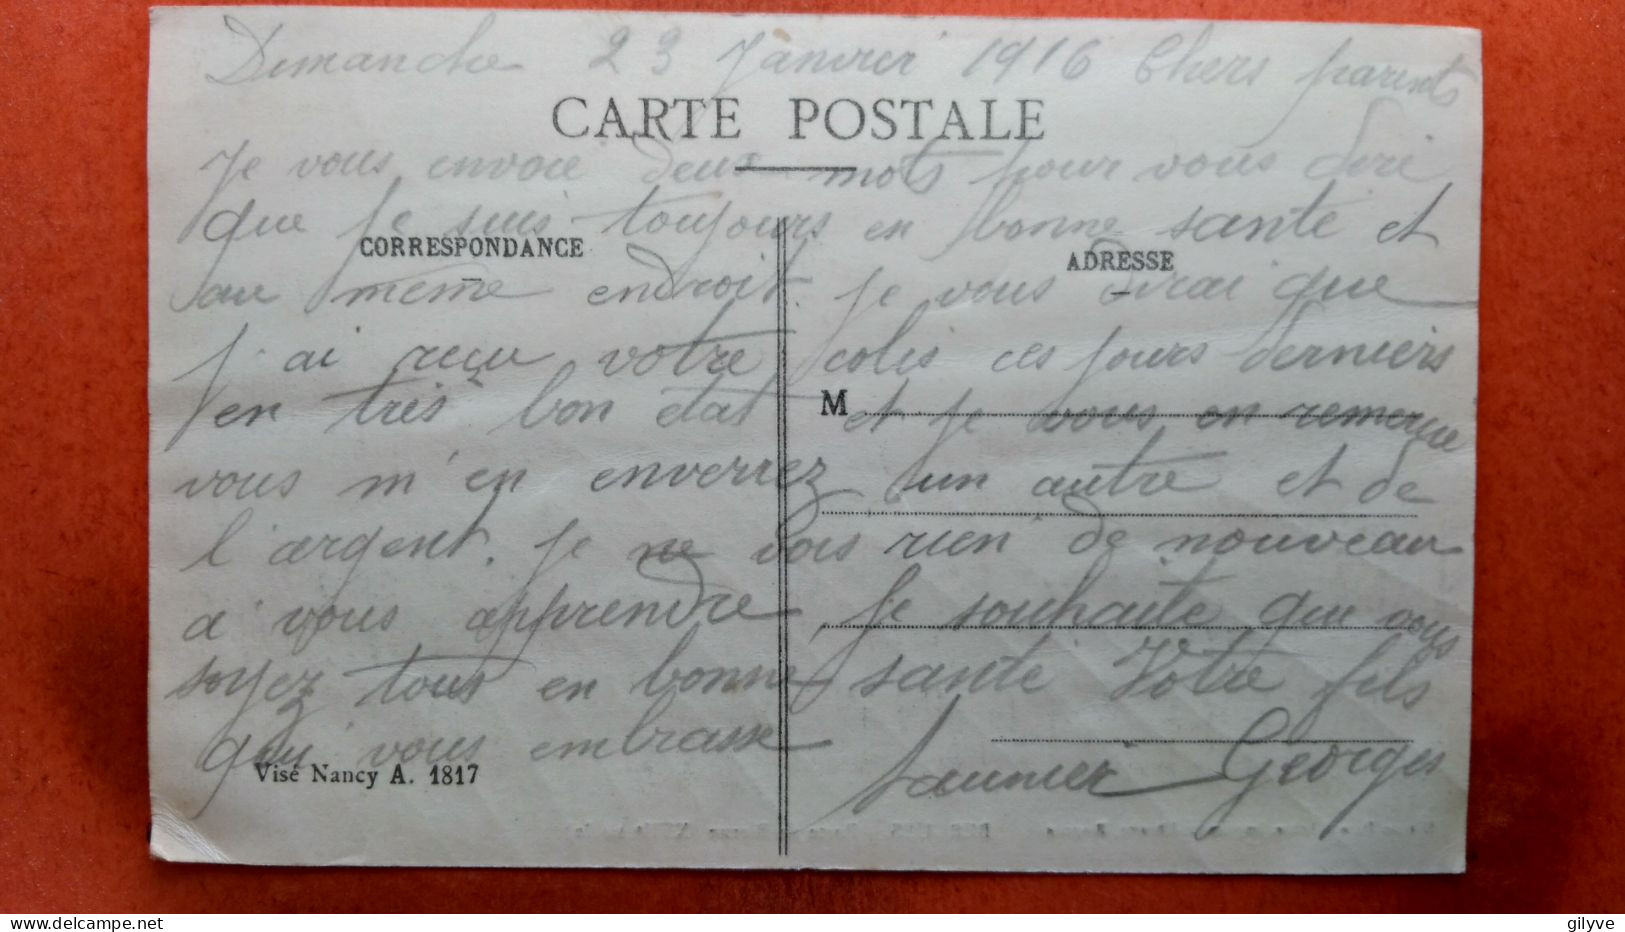 Dimanche 23 Janvier 1916 Chers parents
CARTE POSTALE
Je vous envoie deux mots pour vous dire
que je suis toujours en bonne santé et
CORRESPONDANCE
ADRESSE
au même endroit. Je vous dirai que
j'ai reçu votre colis ces jours derniers
en très bon état et je vous en remercie
M
vous m'en enverrez un autre et de
l'argent. Je ne vois rien de nouveau
a vous apprendre Je souhaite que vous
soyez tous en bonne santé Votre fils
qui vous embrasse
Saunier Georges
Visé Nancy A. 1817
delcampe.net
gilyve